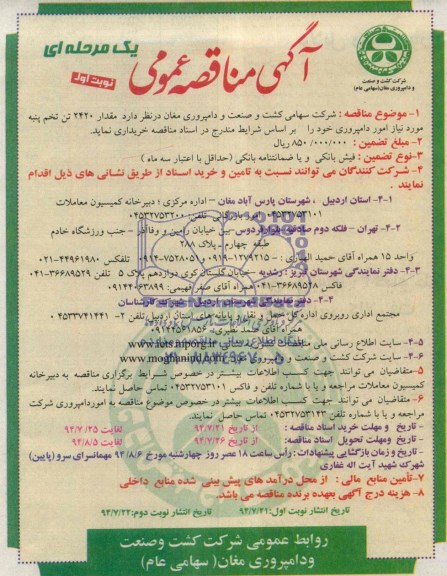 شرکت کشت و صنعت
و دامپروری مغان (سهامی عام)
آگهی مناقصه عمومی
یک مرحله ای
نوبت اول
۱- موضوع مناقصه : شرکت سهامی کشت و صنعت و دامپروری مغان درنظر دارد مقدار ۲۴۲۰ تن تخم پنبه
مورد نیاز امور دامپروری خود را بر اساس شرایط مندرج در اسناد مناقصه خریداری نماید.
۲- مبلغ تضمین : ۸۵۰/۰۰۰/۰۰۰ ریال
۳- نوع تضمین : فیش بانکی و یا ضمانتنامه بانکی (حداقل با اعتبار سه ماه )
۴- شرکت کنندگان می توانند نسبت به تامین و خرید اسناد از طریق نشانی های ذیل اقدام
نمایند .
۴-۱- استان اردبیل ، شهرستان پارس آباد مغان – اداره مرکزی ؛ دبیرخانه کمیسیون معاملات
۰۴۵۳۲۷۵۳۱۰۱ تلفن ۰۴۵۳۲۷۵۳۲۰۸
۴-۲- تهران – فلکه دوم صادقیه بلوار فردوس –بین خیابان رامین و وفا آذر – جنب ورزشگاه خادم
طبقه چهارم – پلاک ۲۸۸
واحد ۱۵ همراه آقای حمید الهیاری : ۰۹۱۹-۱۷۹۲۱۵ – ۰۹۱۴-۷۵۲۸۰۵۱ تلفکس ۴۴۹۶۱۹۸۰-۰۲۱
۴-۳- دفتر نمایندگی شهرستان تبریز : رشدیه – خیابان گلستان کوی دوازدهم پلاک ۵ تلفن ۳۶۶۸۹۵۲۹-۰۴۱
فاکس ۳۶۶۸۹۵۲۸-۰۴۱ همراه آقای صدر فهیمی: ۰۹۱۴۴۰۶۳۸۹۹
۴-۴- دفتر نمایندگی شهرستان اردبیل – شهرک کارشناسان
مجتمع اداری روبروی اداره کل حمل و نقل و پایانه های استان اردبیل تلفن ۲– ۰۴۵۳۳۷۴۱۴۴۱
همراه آقای صمد نصیری: ۰۹۱۴۴۵۶۱۸۵۶
۴-۵- سایت اطلاع رسانی ملی مناقصات www.iets.mporg.ir
۴-۶- سایت شرکت کشت و صنعت و دامپروری مغان www.moghanind.com
۵-متقاضیان می توانند جهت کسب اطلاعات بیشتر در خصوص شرایط برگزاری مناقصه به دبیرخانه
کمیسیون معاملات مراجعه و یا با شماره تلفن و فاکس ۰۴۵۳۲۷۵۳۱۰۱ تماس حاصل نمایند.
۶- متقاضیان می توانند جهت کسب اطلاعات بیشتر در خصوص موضوع مناقصه به اموردامپروری شرکت
مراجعه و یا با شماره تلفن ۰۴۵۳۲۷۵۳۱۴۳ تماس حاصل نمایند.
- تاریخ و مهلت خرید اسناد مناقصه : از تاریخ ۹۴/۷/۲۱ لغایت ۹۴/۷/۲۵
- تاریخ ومهلت تحویل اسناد مناقصه: از تاریخ ۹۴/۷/۲۶ لغایت ۹۴/۸/۵
- تاریخ و زمان بازگشایی پیشنهادات : رأس ساعت ۱۸ عصر روز چهارشنبه مورخ ۹۴/۸/۶ مهمانسرای سرو (پایین)
شهرک شهید آیت اله غفاری
۷-تأمین منابع مالی : از محل درآمد های پیش بینی شده منابع داخلی
۸- هزینه درج آگهی بعهده برنده مناقصه می باشد.
تاریخ انتشار نوبت اول: ۹۴/۷/۲۱ تاریخ انتشار نوبت دوم: ۹۴/۷/۲۲
روابط عمومی شرکت کشت وصنعت
ودامپروری مغان( سهامی عام)